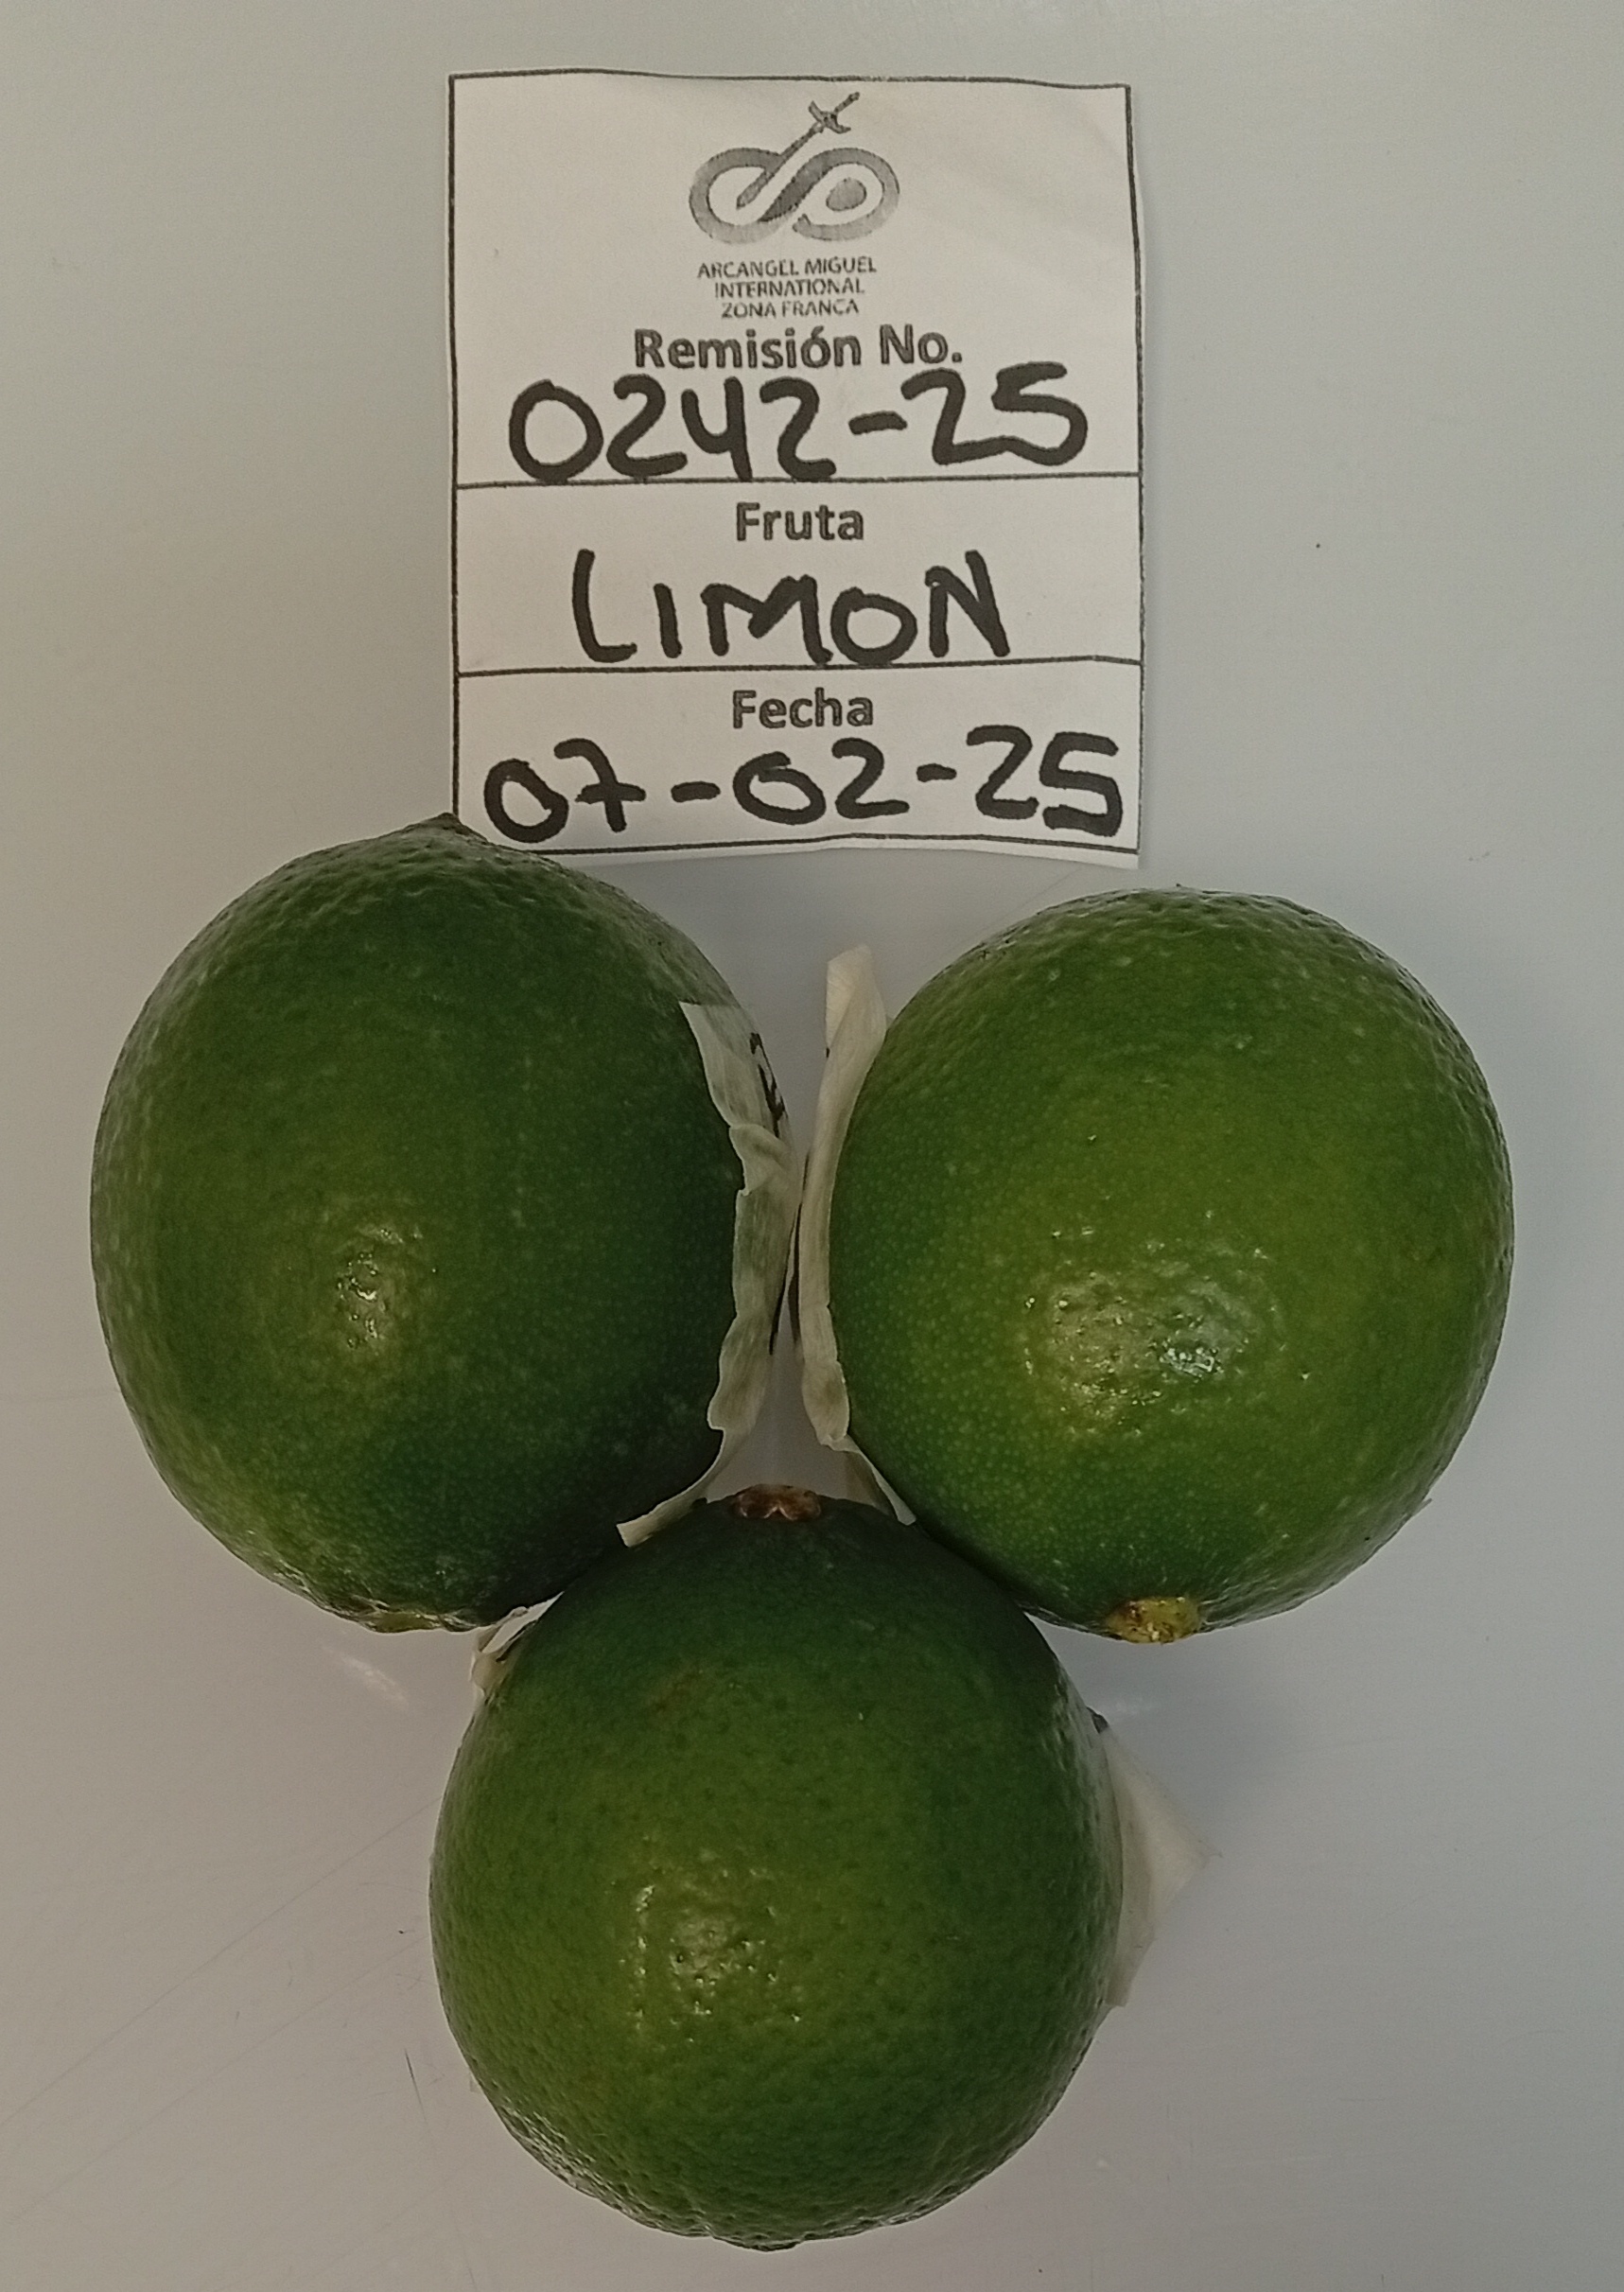 ARCANGEL MIGUEL
INTERNATIONAL
ZONA FRANCA
Remisión No.
0242-25
Fruta
LIMON
Fecha
07-02-25